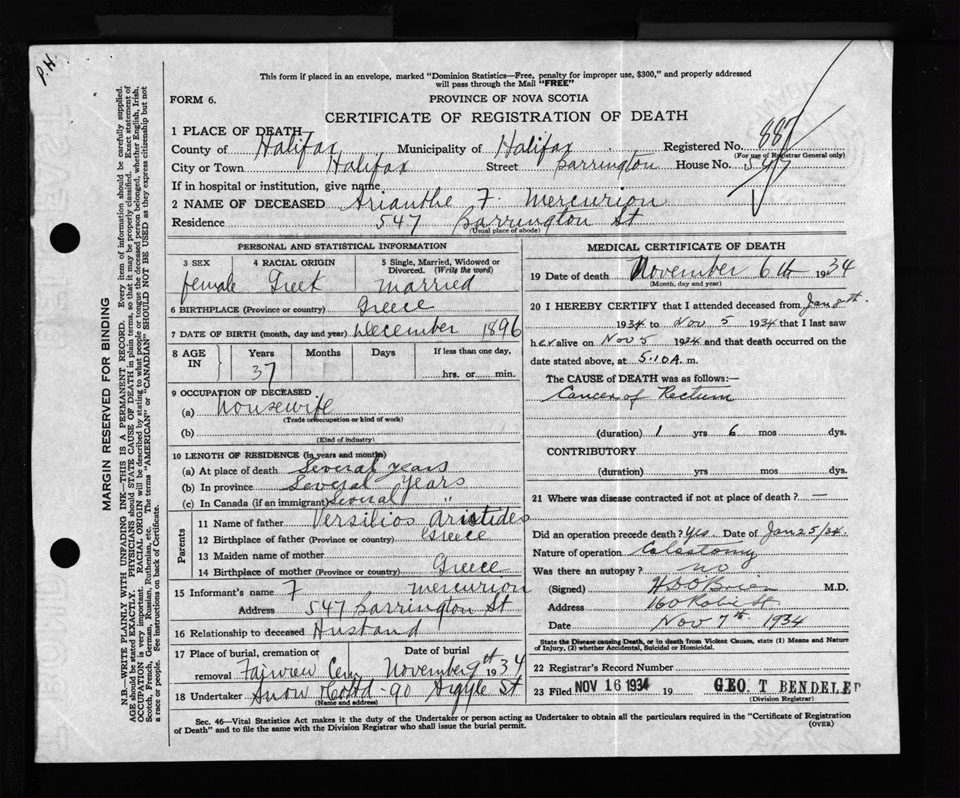 P.H.
This form if placed in an envelope, marked "Dominion Statistics—Free, penalty for improper use, $300," and properly addressed
will pass through the Mail "FREE"
FORM 6.
PROVINCE OF NOVA SCOTIA
CERTIFICATE OF REGISTRATION OF DEATH
1 PLACE OF DEATH—
County of Halifax Municipality of Halifax Registered No. 887
(For use of Registrar General only)
City or Town Halifax Street Barrington House No. 547
If in hospital or institution, give name
2 NAME OF DECEASED Arianthe F. Mercurion
Residence 547 Barrington St
(Usual place of abode)
PERSONAL AND STATISTICAL INFORMATION
3 SEX 4 RACIAL ORIGIN 5 Single, Married, Widowed or
Divorced. (Write the word)
female Greek Married
6 BIRTHPLACE (Province or country) Greece
7 DATE OF BIRTH (month, day and year) December 1896
8 AGE IN Years Months Days If less than one day,
37 hrs. or min.
9 OCCUPATION OF DECEASED
(a) Housewife
(Trade or occupation or kind of work)
(b)
(Kind of industry)
10 LENGTH OF RESIDENCE (in years and months)
(a) At place of death Several years
(b) In province Several Years
(c) In Canada (if an immigrant) Several "
Parents
11 Name of father Versilios Aristides
12 Birthplace of father (Province or country) Greece
13 Maiden name of mother
14 Birthplace of mother (Province or country) Greece
15 Informant's name F Mercurion
Address 547 Barrington St
16 Relationship to deceased Husband
17 Place of burial, cremation or Date of burial
removal Fairview Cem. November 9th 1934
18 Undertaker Snow & Co Ltd - 90 Argyle St
(Name and address)
MEDICAL CERTIFICATE OF DEATH
19 Date of death November 6th 1934
(Month, day and year)
20 I HEREBY CERTIFY that I attended deceased from Jan
1934 to Nov 5 1934 that I last saw
her alive on Nov 5 1934 and that death occurred on the
date stated above, at 5.10 A. m.
The CAUSE of DEATH was as follows:—
Cancer of Rectum
(duration) 1 yrs 6 mos dys.
CONTRIBUTORY
(duration) yrs. mos. dys.
21 Where was disease contracted if not at place of death? —
Did an operation precede death? Yes. Date of Jan 25/34.
Nature of operation Colostomy
Was there an autopsy? no
(Signed) M.D.
Address 160 Robie St
Date Nov 7th 1934
State the Disease causing Death, or in death from Violent Causes, state (1) Means and Nature
of Injury, (2) whether Accidental, Suicidal or Homicidal.
22 Registrar's Record Number
23 Filed NOV 16 1934 19 GEO. T BENDELER
(Division Registrar)
Sec. 46—Vital Statistics Act makes it the duty of the Undertaker or person acting as Undertaker to obtain all the particulars required in the "Certificate of Registration
of Death" and to file the same with the Division Registrar who shall issue the burial permit.
(OVER)
MARGIN RESERVED FOR BINDING
N.B.—WRITE PLAINLY WITH UNFADING INK—THIS IS A PERMANENT RECORD. Every item of information should be carefully supplied.
AGE should be stated EXACTLY. PHYSICIANS should STATE CAUSE OF DEATH in plain terms, so that it may be properly classified. Exact statement of
OCCUPATION is very important. RACIAL ORIGIN will be described by stating to what people or tongue the deceased person belonged, whether English, Irish,
Scotch, French, German, Russian, Ruthenian, etc. The terms "AMERICAN" or "CANADIAN" SHOULD NOT BE USED as they express citizenship but not
a race or people. See instructions on back of Certificate.